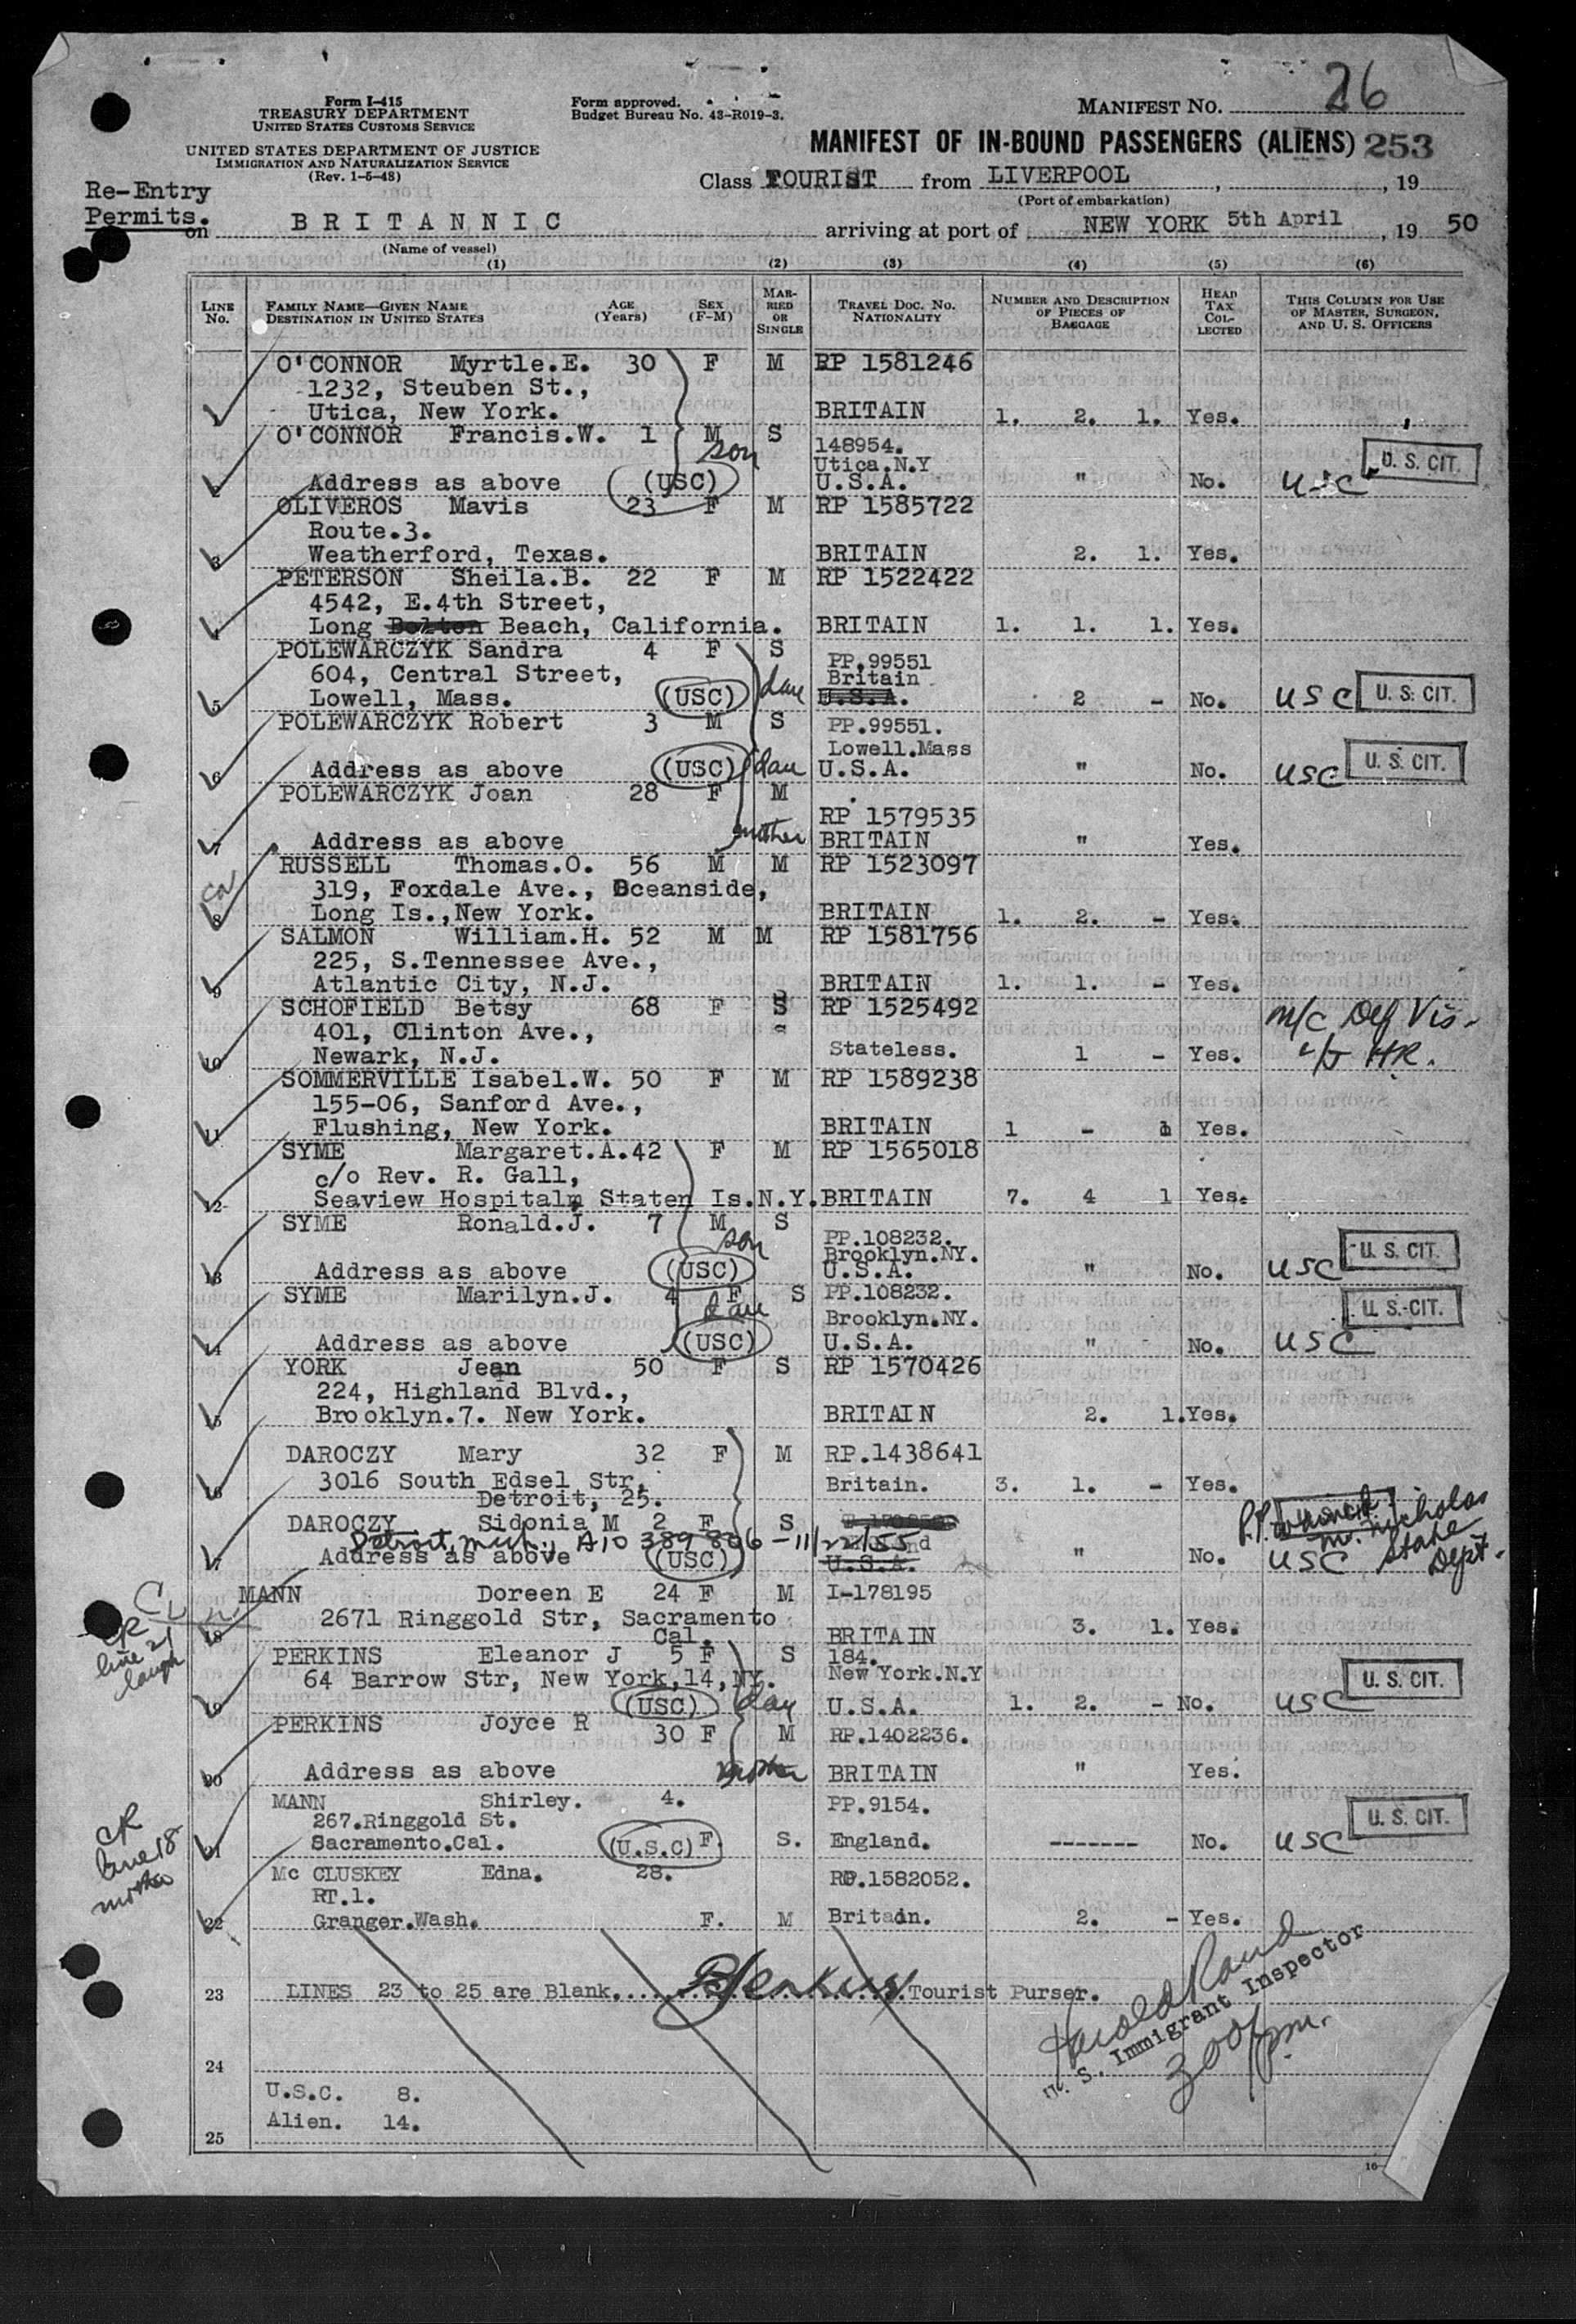 Form I-415
TREASURY DEPARTMENT
UNITED STATES CUSTOMS SERVICE
UNITED STATES DEPARTMENT OF JUSTICE
IMMIGRATION AND NATURALIZATION SERVICE
(Rev. 1-5-48)
Form approved.
Budget Bureau No. 43-R019-3.
MANIFEST NO. 26
MANIFEST OF IN-BOUND PASSENGERS (ALIENS) 253
Class TOURIST from LIVERPOOL , , 19
(Port of embarkation)
Re-Entry
Permits.
on BRITANNIC arriving at port of NEW YORK 5th April , 19 50
(Name of vessel)
(1) (2) (3) (4) (5) (6)
LINE NO. FAMILY NAME—GIVEN NAME DESTINATION IN UNITED STATES AGE (Years) SEX (F-M) MARRIED OR SINGLE TRAVEL DOC. NO. NATIONALITY NUMBER AND DESCRIPTION OF PIECES OF BAGGAGE HEAD TAX COLLECTED THIS COLUMN FOR USE OF MASTER, SURGEON, AND U. S. OFFICERS
O'CONNOR Myrtle.E. 30 F M RP 1581246
1232, Steuben St.,
Utica, New York. BRITAIN 1. 2. 1. Yes.
O'CONNOR Francis.W. 1 M S 148954.
son Utica.N.Y
2 Address as above (USC) U.S.A. " No. USC U. S. CIT.
OLIVEROS Mavis 23 F M RP 1585722
Route.3.
3 Weatherford, Texas. BRITAIN 2. 1. Yes.
PETERSON Sheila.B. 22 F M RP 1522422
4542, E.4th Street,
4 Long Bolton Beach, California. BRITAIN 1. 1. 1. Yes.
POLEWARCZYK Sandra 4 F S PP.99551
604, Central Street, Britain
5 Lowell, Mass. (USC) dau U.S.A. 2 - No. USC U. S. CIT.
POLEWARCZYK Robert 3 M S PP.99551.
Lowell.Mass
6 Address as above (USC) dau U.S.A. " No. USC U. S. CIT.
POLEWARCZYK Joan 28 F M
RP 1579535
7 Address as above mother BRITAIN " Yes.
RUSSELL Thomas.O. 56 M M RP 1523097
319, Foxdale Ave., Oceanside,
8 Long Is.,New York. BRITAIN 1. 2. - Yes.
SALMON William.H. 52 M M RP 1581756
225, S.Tennessee Ave.,
9 Atlantic City, N.J. BRITAIN 1. 1. - Yes.
SCHOFIELD Betsy 68 F S RP 1525492 m/c Def Vis-
401, Clinton Ave.,
10 Newark, N.J. Stateless. 1 - Yes. HR.
SOMMERVILLE Isabel.W. 50 F M RP 1589238
155-06, Sanford Ave.,
11 Flushing, New York. BRITAIN 1 - 1 Yes.
SYME Margaret.A. 42 F M RP 1565018
c/o Rev. R. Gall,
12 Seaview Hospital, Staten Is.N.Y. BRITAIN 7. 4 1 Yes.
SYME Ronald.J. 7 M S PP.108232.
son Brooklyn.NY.
13 Address as above (USC) U.S.A. " No. USC U. S. CIT.
SYME Marilyn.J. 4 F S PP.108232.
dau Brooklyn.NY.
14 Address as above (USC) U.S.A. " No. USC U. S. CIT.
YORK Jean 50 F S RP 1570426
224, Highland Blvd.,
15 Brooklyn.7. New York. BRITAIN 2. 1. Yes.
DAROCZY Mary 32 F M RP.1438641
16 3016 South Edsel Str, Britain. 3. 1. - Yes.
Detroit, 25.
DAROCZY Sidonia M 2 F S P.P. Nicholas
Detroit, Mich., A10 389 806 - 11/22/55
17 Address as above (USC) U.S.A. " No. USC State Dept.
MANN Doreen E 24 F M I-178195
18 2671 Ringgold Str, Sacramento Cal. BRITAIN 3. 1. Yes.
CR
line 21
PERKINS Eleanor J 5 F S 184.
64 Barrow Str, New York,14,NY. New York.N.Y
19 (USC) dau U.S.A. 1. 2. - No. USC U. S. CIT.
PERKINS Joyce R 30 F M RP.1402236.
20 Address as above mother BRITAIN " Yes.
MANN Shirley. 4. PP.9154.
267.Ringgold St.
21 Sacramento.Cal. (U.S.C) F. S. England. ------- No. USC U. S. CIT.
CR
line 18
mother
Mc CLUSKEY Edna. 28. RP.1582052.
RT.1.
22 Granger.Wash. F. M Britain. 2. - Yes.
23 LINES 23 to 25 are Blank. Tourist Purser.
Harold Rand
U. S. Immigrant Inspector
300 pm.
24
U.S.C. 8.
Alien. 14.
25
16-